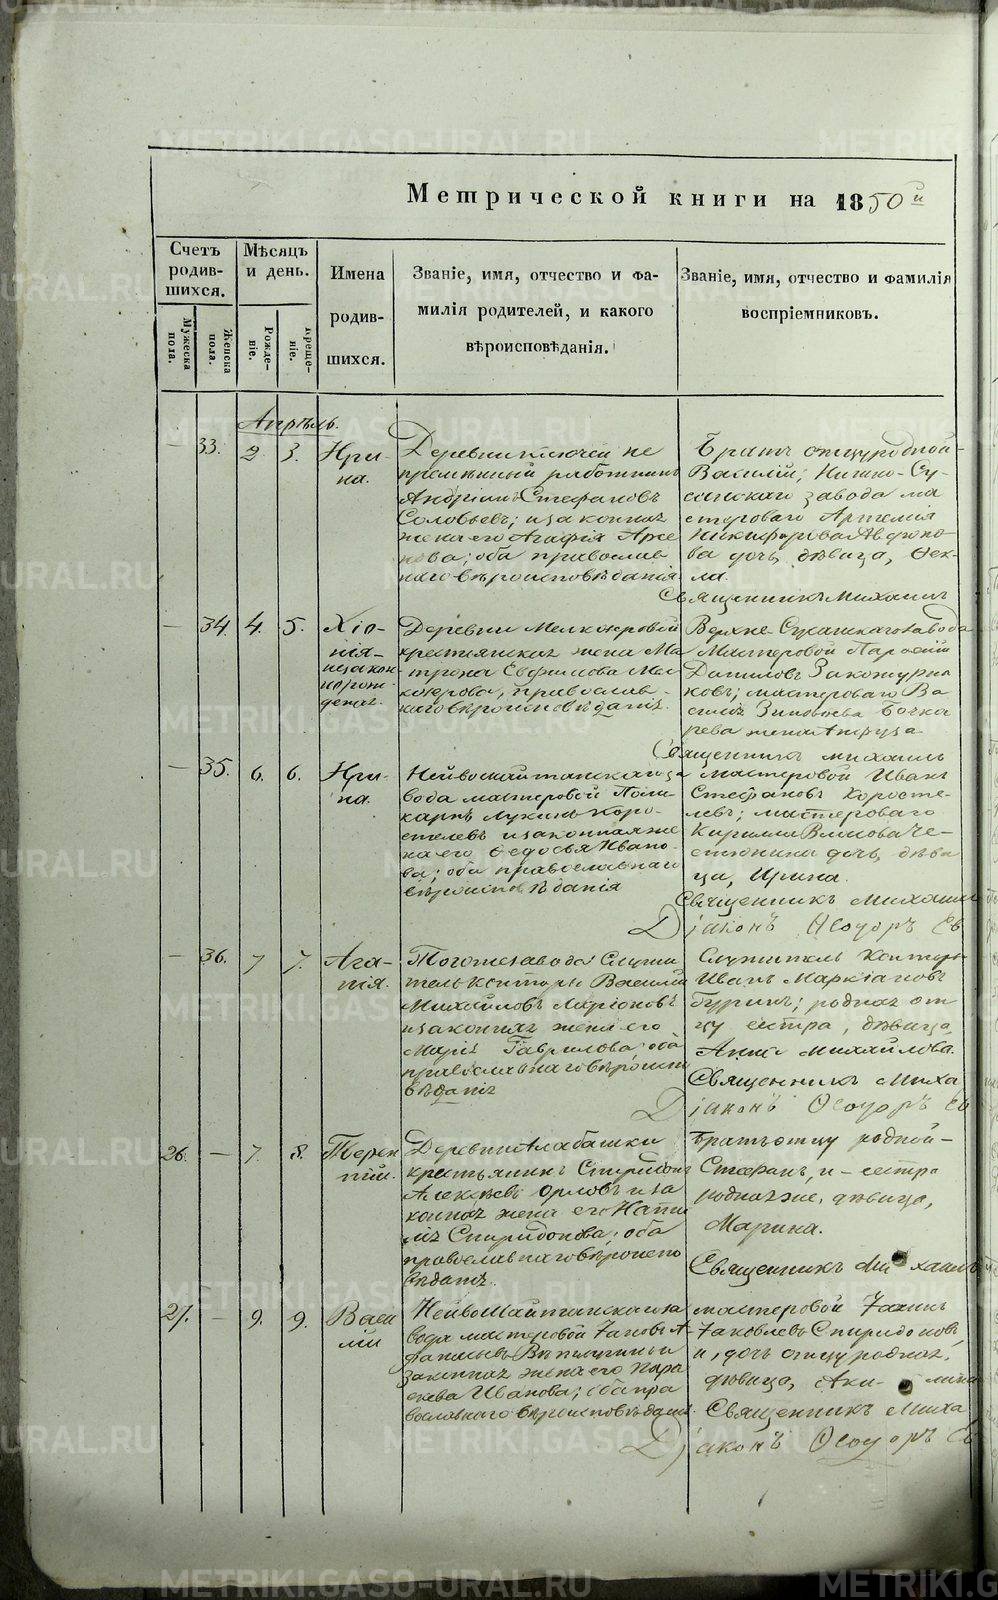 METRIKI.GASO-URAL.RU
Метрической книги на 1850 й
Счетъ родив-шихся.
Мужеска пола.
Женска пола.
Мѣсяцъ и день.
Рожде-ніе.
Креще-ніе.
Имена родив-шихся.
Званіе, имя, отчество и фа-
милія родителей, и какого
вѣроисповѣданія.
Званіе, имя, отчество и фамилія
воспріемниковъ.
Апрѣль.
— 33. 2 3. Ири-
на.
Деревни Ключей не
премѣнный работникъ
Андріанъ Стефановъ
Соловьевъ; и законная
жена его Агафія
оба православ
наго вѣроисповѣданія.
Братъ отцу родной
Василій; Нижно-Су-
санскаго завода ма
стероваго Артемія
Никифорова
дочь, дѣвица, Ѳек-
ла.
Священникъ Михаилъ
— 34. 4. 5. Хіо-
нія
незакон
норож-
денная.
Деревни Мелкозеровой
крестьянская жена Ма
трона Евфимова Мел
козерова, православ-
наго вѣроисповѣданія.
Верхне-Сусанскаго завода
Мастеровой
Даниловъ
ковъ; мастероваго Ва
силія Зиновьева Бочка
рева жена
Священникъ Михаилъ
— 35. 6. 6. Ири-
на.
Нейвошайтанскаго за
вода мастеровой Поли-
карпъ Лукинъ Коро-
стелевъ и законная же
на его Ѳедосья Ивано-
ва; оба православнаго
вѣроисповѣданія
мастеровой Иванъ
Стефановъ Коросте-
левъ; мастероваго
Кирилла
дочь, дѣви
ца, Ирина.
Священникъ Михаилъ
Діаконъ Ѳеодоръ Ев
— 36. 7 7. Ага-
пія.
Тогоже завода Служи
тель конторы Василій
Михайловъ Ларіоновъ
и законная жена его
Марія Гаврилова; оба
православнаго вѣроиспо
вѣданія
Служитель конторы
Иванъ Маркіановъ
Буринъ; родная от
цу сестра, дѣвица,
Анна Михайлова.
Священникъ Миха
Діаконъ Ѳеодоръ Ев
26. — 7. 8. Терен
тій.
Деревни Алабашки
крестьянинъ Спиридонъ
Алексѣевъ Орловъ и за
конная жена его Ната
лія Спиридонова; оба
православнаго вѣроиспо
вѣданія.
Братъ отцу родной
Стефанъ, и сестра
родная же, дѣвица,
Марина.
Священникъ Михаилъ
27. — 9. 9. Васи
лій
Нейвошайтанскаго за
вода мастеровой Іаковъ А-
законная жена его Пара
скева Иванова; оба пра
вославнаго вѣроисповѣданія.
мастеровой
Іаковлевъ Спиридоновъ,
и, дочь отцу родная,
дѣвица, Акилина
Священникъ Миха
Діаконъ Ѳеодоръ Ев